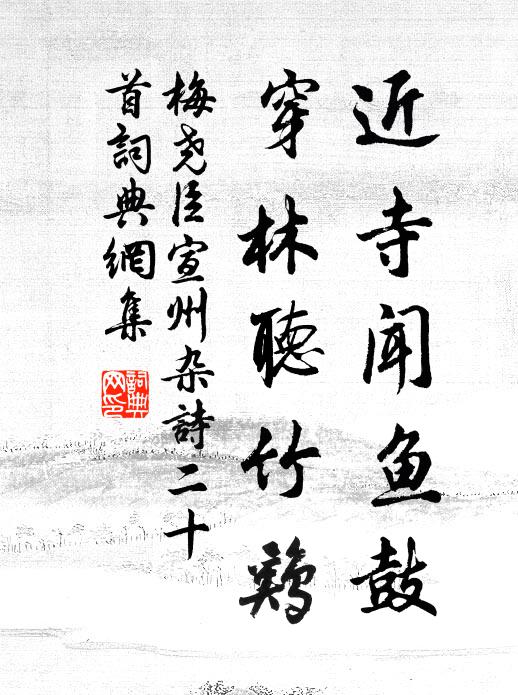 近寺闻鱼鼓
穿林聽竹鷄
梅尧臣宣州杂詩二十
首詞典網集
詞典
网印